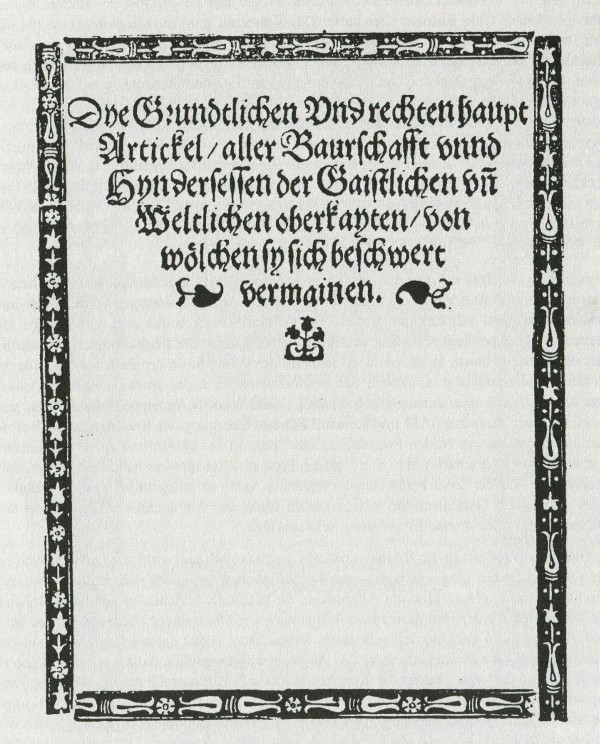 Dye Grundtlichen Vnd rechten haupt
Artickel / aller Baurschafft vnnd
Hyndersessen der Gaistlichen vn̄
Weltlichen oberkayten / von
wölchen sy sich beschwert
vermainen.